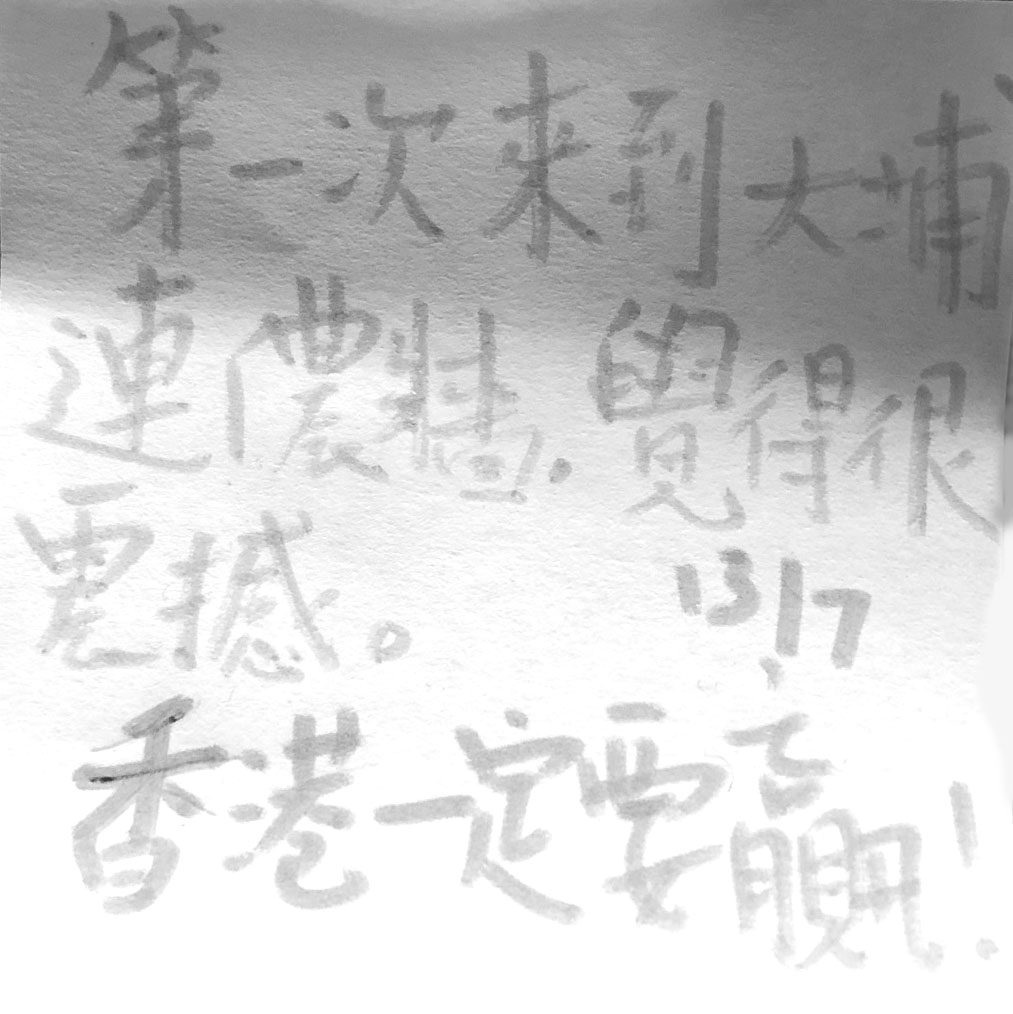 第一次來到大埔
連儂牆,覺得很
震撼。 13/7
香港一定要贏!